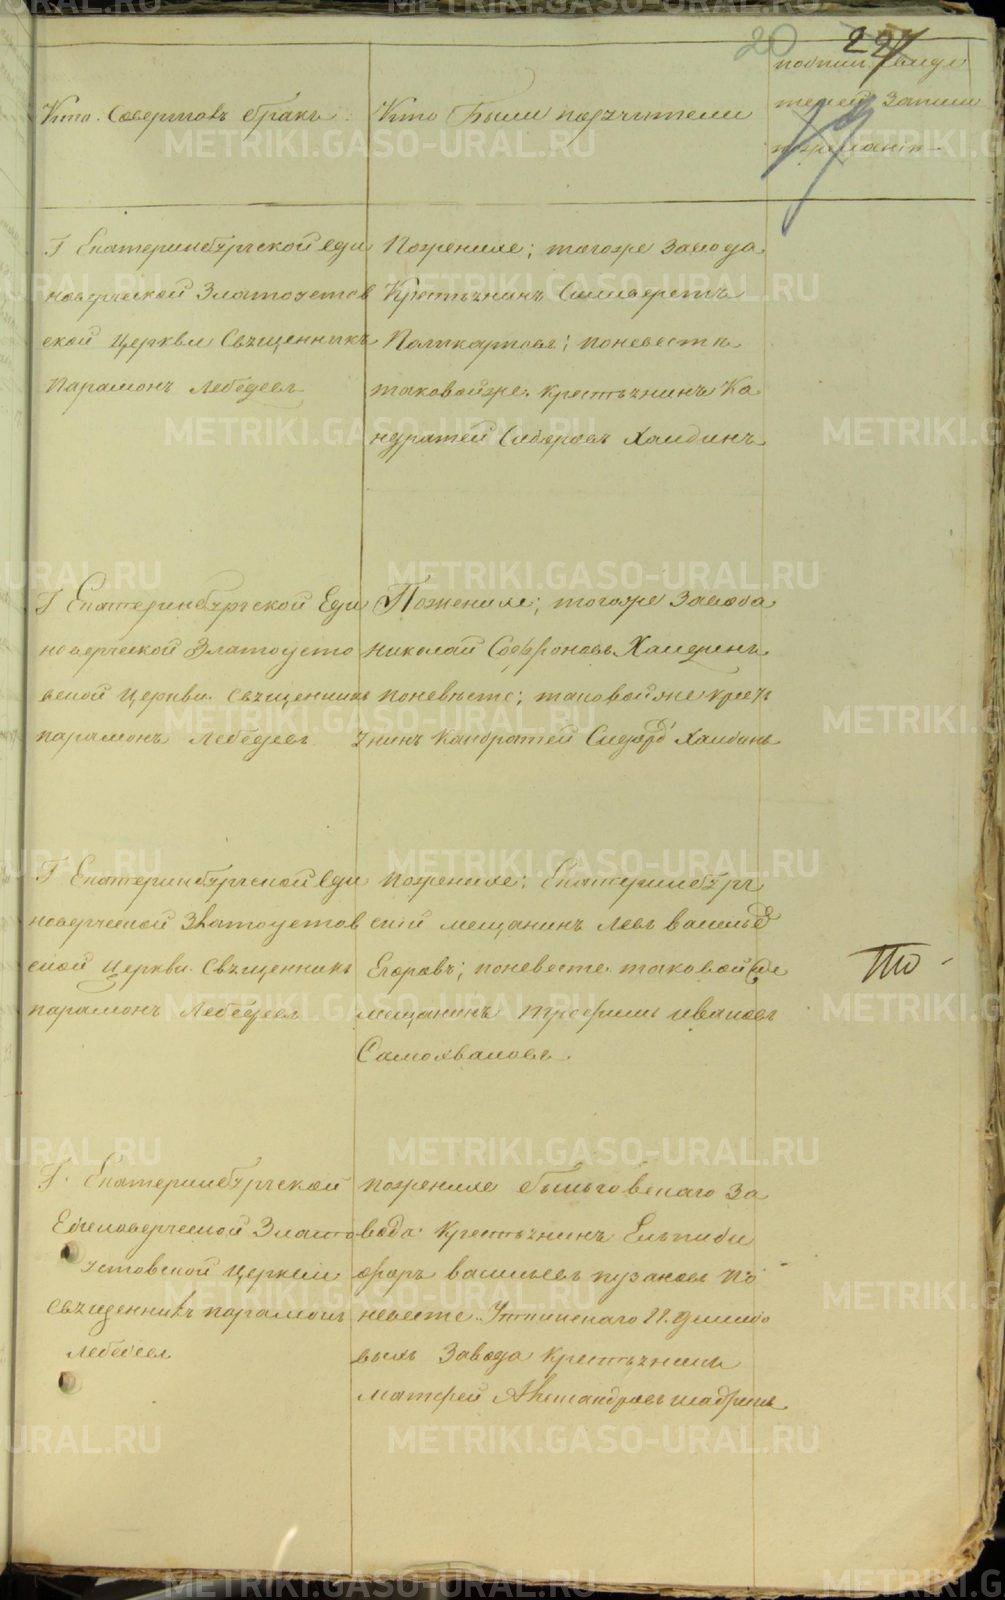 20 227
Кто Совершалъ бракъ
Кто Были поручители
подпис свиде
телей Запис
Г Екатеринбургской Еди
новерческой Златоустов
ской Церкви Священникъ
Парамонъ Лебедевъ
Поженихе; тогоже Завода
Крестьянинъ Силиверстъ
Поликарповъ; поневестъ
таковойже крестьянинъ Ка
ндратей Сидоровъ Хаидинъ
Г Екатеринбургской Еди
новерческой Златоусто
вской Церкви Священникъ
парамонъ Лебедевъ
Поженихе; тогоже Завода
николай Софроновъ Хаидинъ
поневѣсте; таковойже крестъ
янинъ Кандратей Сидоро Хаидинъ
Г Екатеринбургской Еди
новерческой Златоустов
ской Церкви Священникъ
парамонъ Лебедевъ
Поженихе; Екатеринбург
ской мещанинъ Левъ васильев
Егоровъ; поневесте таковойже
мещанинъ Трофимъ ивановъ
Самохваловъ
То
Г. Екатеринбургской
Единоверческой Злато
устовской Церкви
Священникъ парамонъ
Лебедев
пожениху бынговскаго За
вода Крестьянинъ Елпиди
форъ васильевъ пузановъ По
невесте Уткинскаго Демидо
выхъ Завода Крестьянинъ
Матфей Александровъ шадринъ
METRIKI.GASO-URAL.RU